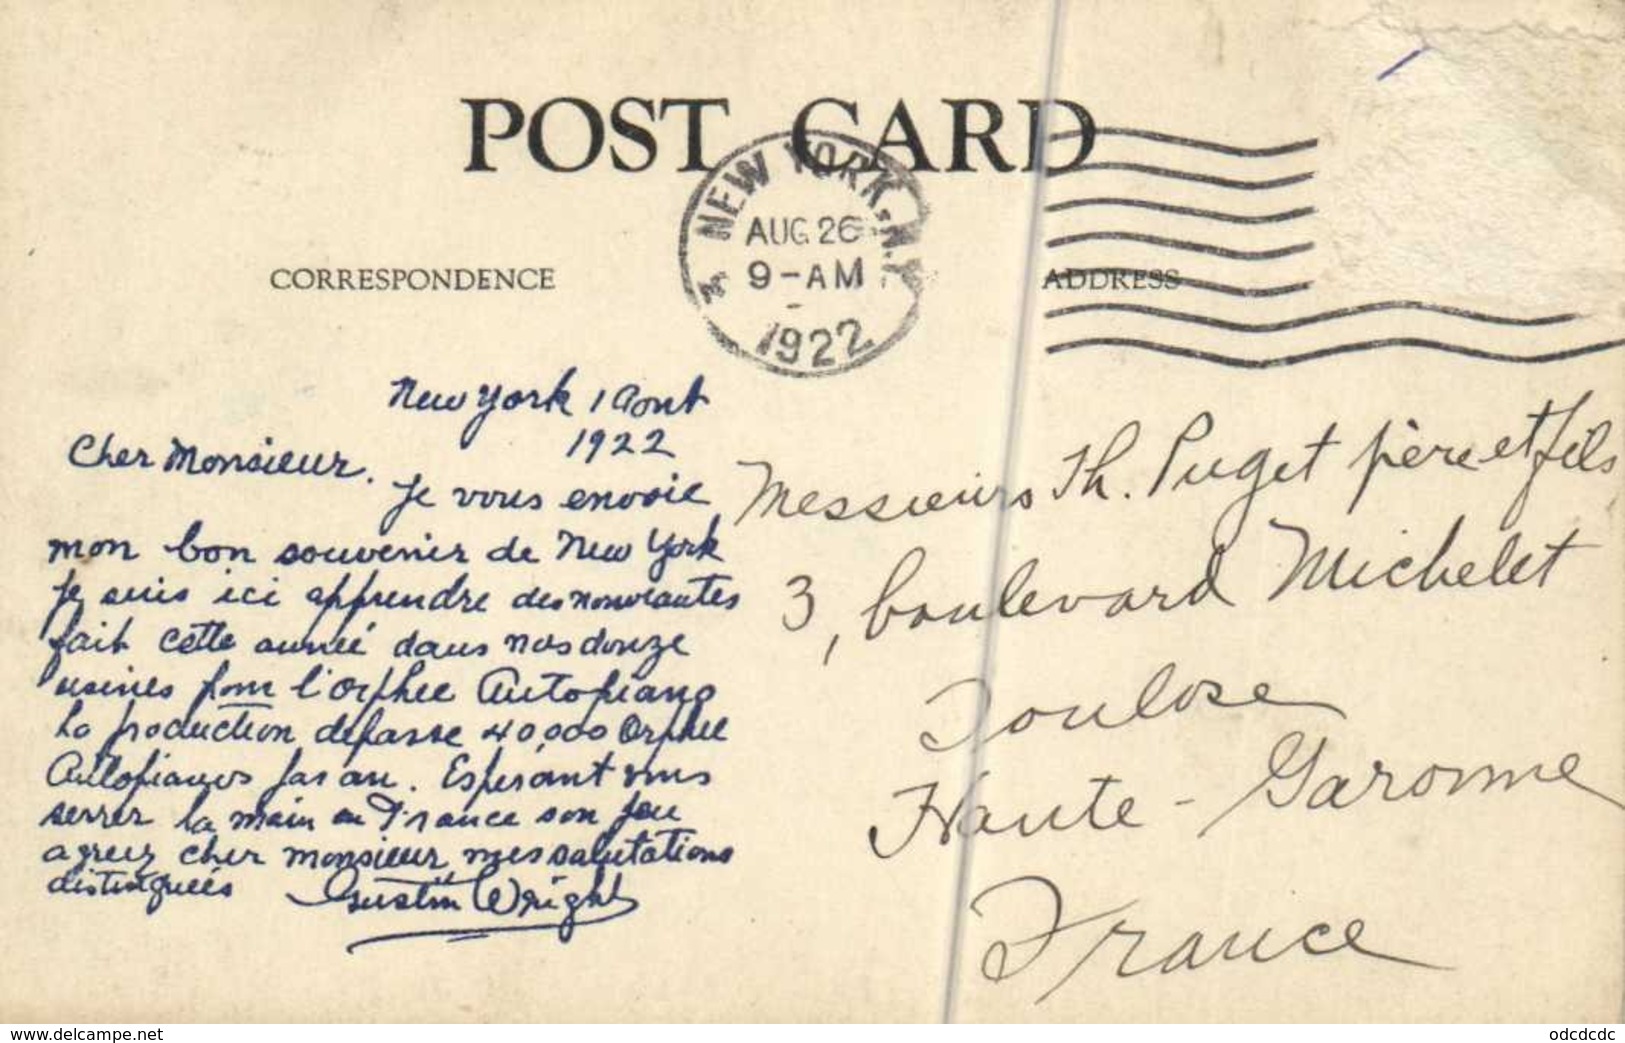 POST CARD
NEW YORK, N.Y.
AUG 26
9-AM
1922
CORRESPONDENCE
ADDRESS
New York 1 Aout
1922
Cher Monsieur.
Je vous envoie
mon bon souvenir de New York
je suis ici apprendre des nouveautes
fait cette année dans nos douze
usines pour l'Orphee Autopiano
la production depasse 40,000 Orphee
Autopianos par an. Esperant vous
serrer la main en France son peu
agreez cher monsieur mes salutations
distinguées Gustin Wright
Messieurs Th. Puget père et fils
3, boulevard Michelet
Toulose
Haute-Garonne
France
www.delcampe.net
odcdcdc